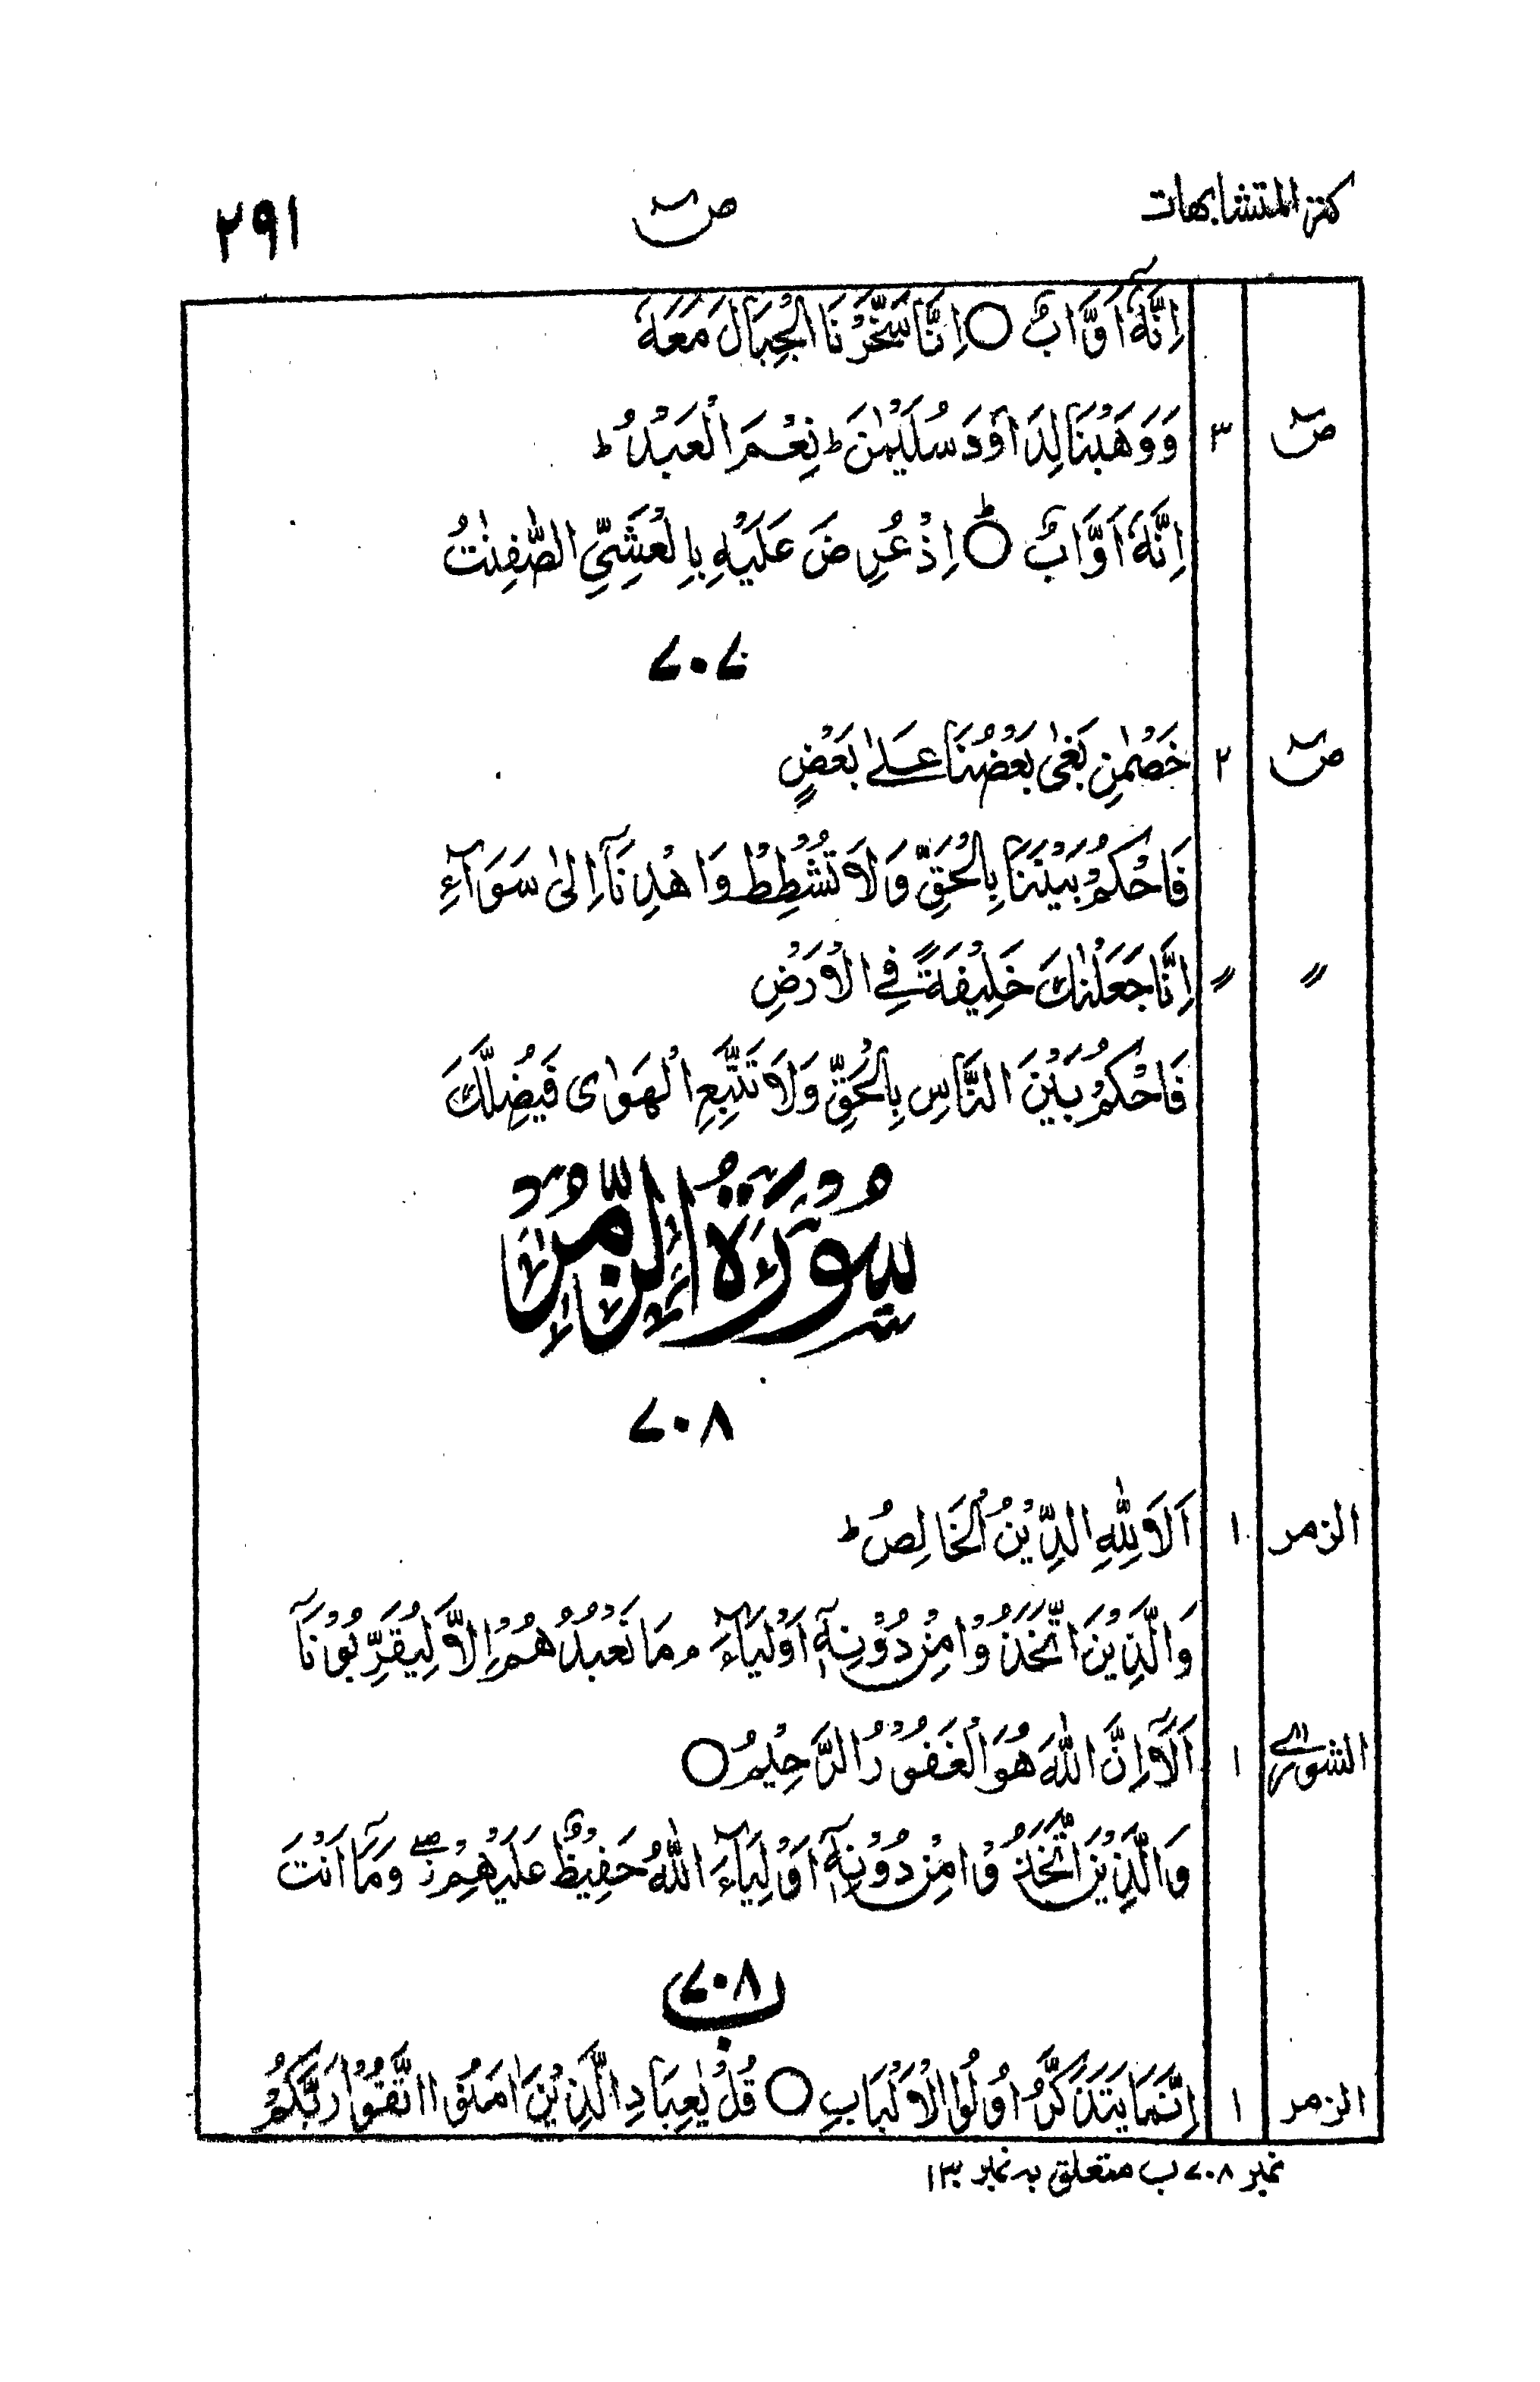 کنز المتشابہات صٓ ۲۹۱
اِنَّهٗٓ اَوَّابٌ ○ اِنَّا سَخَّرْنَا الْجِبَالَ مَعَهٗ
صٓ ۳ وَوَهَبْنَا لِدَاوٗدَ سُلَيْمٰنَ ؕ نِعْمَ الْعَبْدُ ؕ
اِنَّهٗٓ اَوَّابٌ ○ؕ اِذْ عُرِضَ عَلَيْهِ بِالْعَشِيِّ الصّٰفِنٰتُ
۷۰۷
صٓ ۲ خَصْمٰنِ بَغٰى بَعْضُنَا عَلٰى بَعْضٍ
فَاحْكُمْ بَيْنَنَا بِالْحَقِّ وَلَا تُشْطِطْ وَاهْدِنَآ اِلٰى سَوَآءِ
〃 〃 اِنَّا جَعَلْنٰكَ خَلِيْفَةً فِي الْاَرْضِ
فَاحْكُمْ بَيْنَ النَّاسِ بِالْحَقِّ وَلَا تَتَّبِعِ الْهَوٰى فَيُضِلَّكَ
سُوْرَةُ الزُّمَرِ
۷۰۸
الزمر ۱ اَلَا لِلّٰهِ الدِّيْنُ الْخَالِصُ ؕ
وَالَّذِيْنَ اتَّخَذُوْا مِنْ دُوْنِهٖٓ اَوْلِيَآءَ ۘ مَا نَعْبُدُهُمْ اِلَّا لِيُقَرِّبُوْنَآ
الشورٰى ۱ اَلَآ اِنَّ اللّٰهَ هُوَ الْغَفُوْرُ الرَّحِيْمُ ○
وَالَّذِيْنَ اتَّخَذُوْا مِنْ دُوْنِهٖٓ اَوْلِيَآءَ اللّٰهُ حَفِيْظٌ عَلَيْهِمْ ۖ وَمَآ اَنْتَ
۷۰۸ ب
الزمر ۱ اِنَّمَا يَتَذَكَّرُ اُولُوا الْاَلْبَابِ ○ قُلْ يٰعِبَادِ الَّذِيْنَ اٰمَنُوا اتَّقُوْا رَبَّكُمْ
نمبر ۷۰۸ ب متعلق بہ نمبر ۱۳